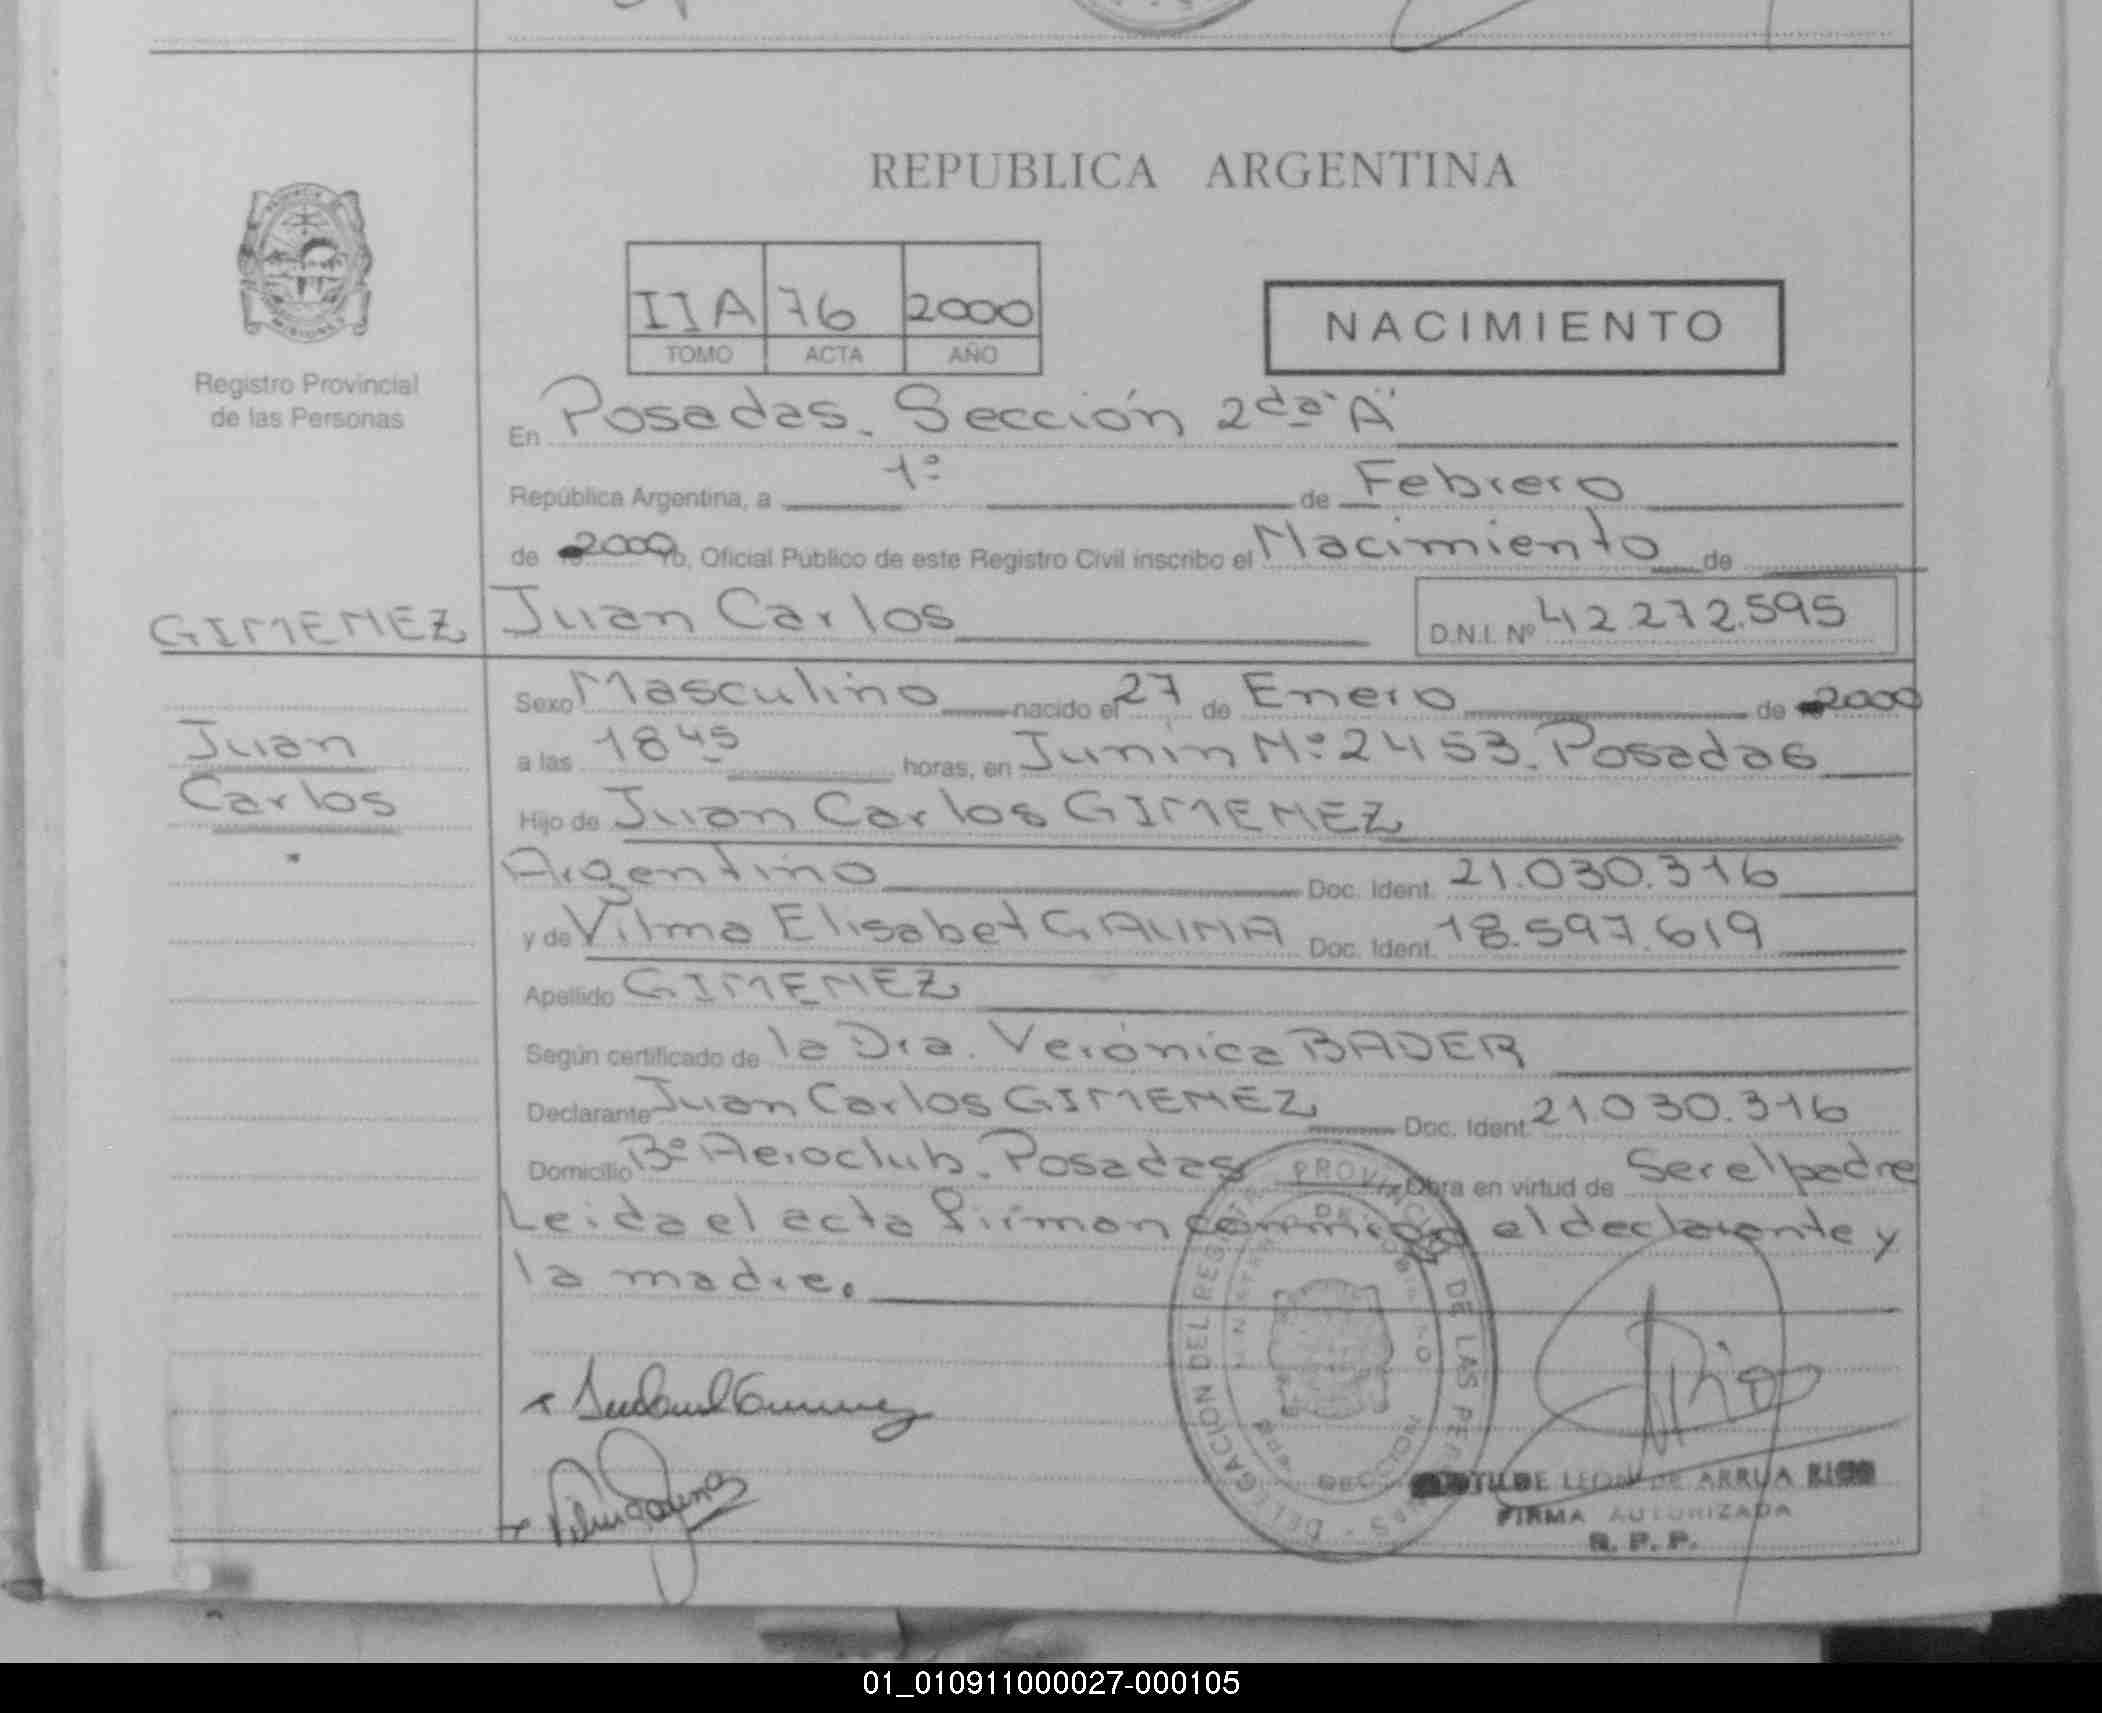 REPUBLICA ARGENTINA
IIA 76 2000
TOMO ACTA AÑO
NACIMIENTO
Registro Provincial
de las Personas
En Posadas. Sección 2da "A"
República Argentina, a 1º de Febrero
de 2000, Oficial Público de este Registro Civil inscribo el Nacimiento de
GIMENEZ
Juan Carlos D.N.I. Nº 42.272.595
Juan
Carlos
Sexo Masculino nacido el 27 de Enero de 2000
a las 18 45 horas, en Junín Nº 2453. Posadas
Hijo de Juan Carlos GIMENEZ
Argentino Doc. Ident. 21.030.316
y de Vilma Elisabet GAUNA Doc. Ident. 18.597.619
Apellido GIMENEZ
Según certificado de la Dra. Verónica BADER
Declarante Juan Carlos GIMENEZ Doc. Ident. 21.030.316
Domicilio Bº Aeroclub. Posadas Obra en virtud de Ser el padre
Leída el acta firman conmigo el declarante y
la madre.
DELEGACION DEL REGISTRO PROVINCIAL DE LAS PERSONAS
LEON DE ARRUA
FIRMA AUTORIZADA
R. P. P.
01_010911000027-000105